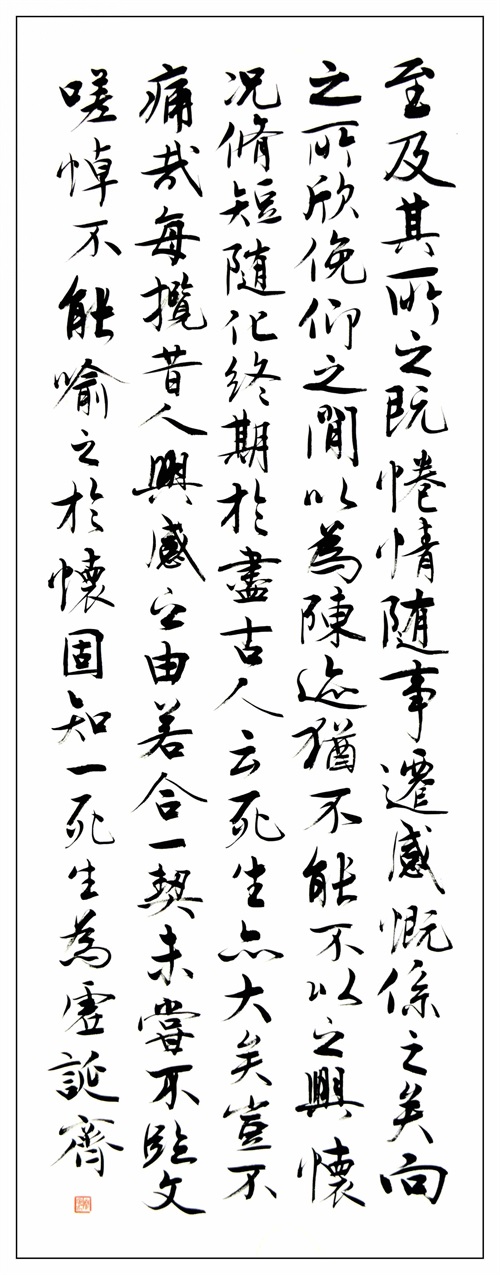 至及其所之既惓情隨事遷感慨係之矣向
之所欣俛仰之間以為陳迹猶不能不以之興懷
况脩短隨化終期於盡古人云死生亦大矣豈不
痛哉每攬昔人興感之由若合一契未嘗不臨文
嗟悼不能喻之於懷固知一死生為虛誕齊